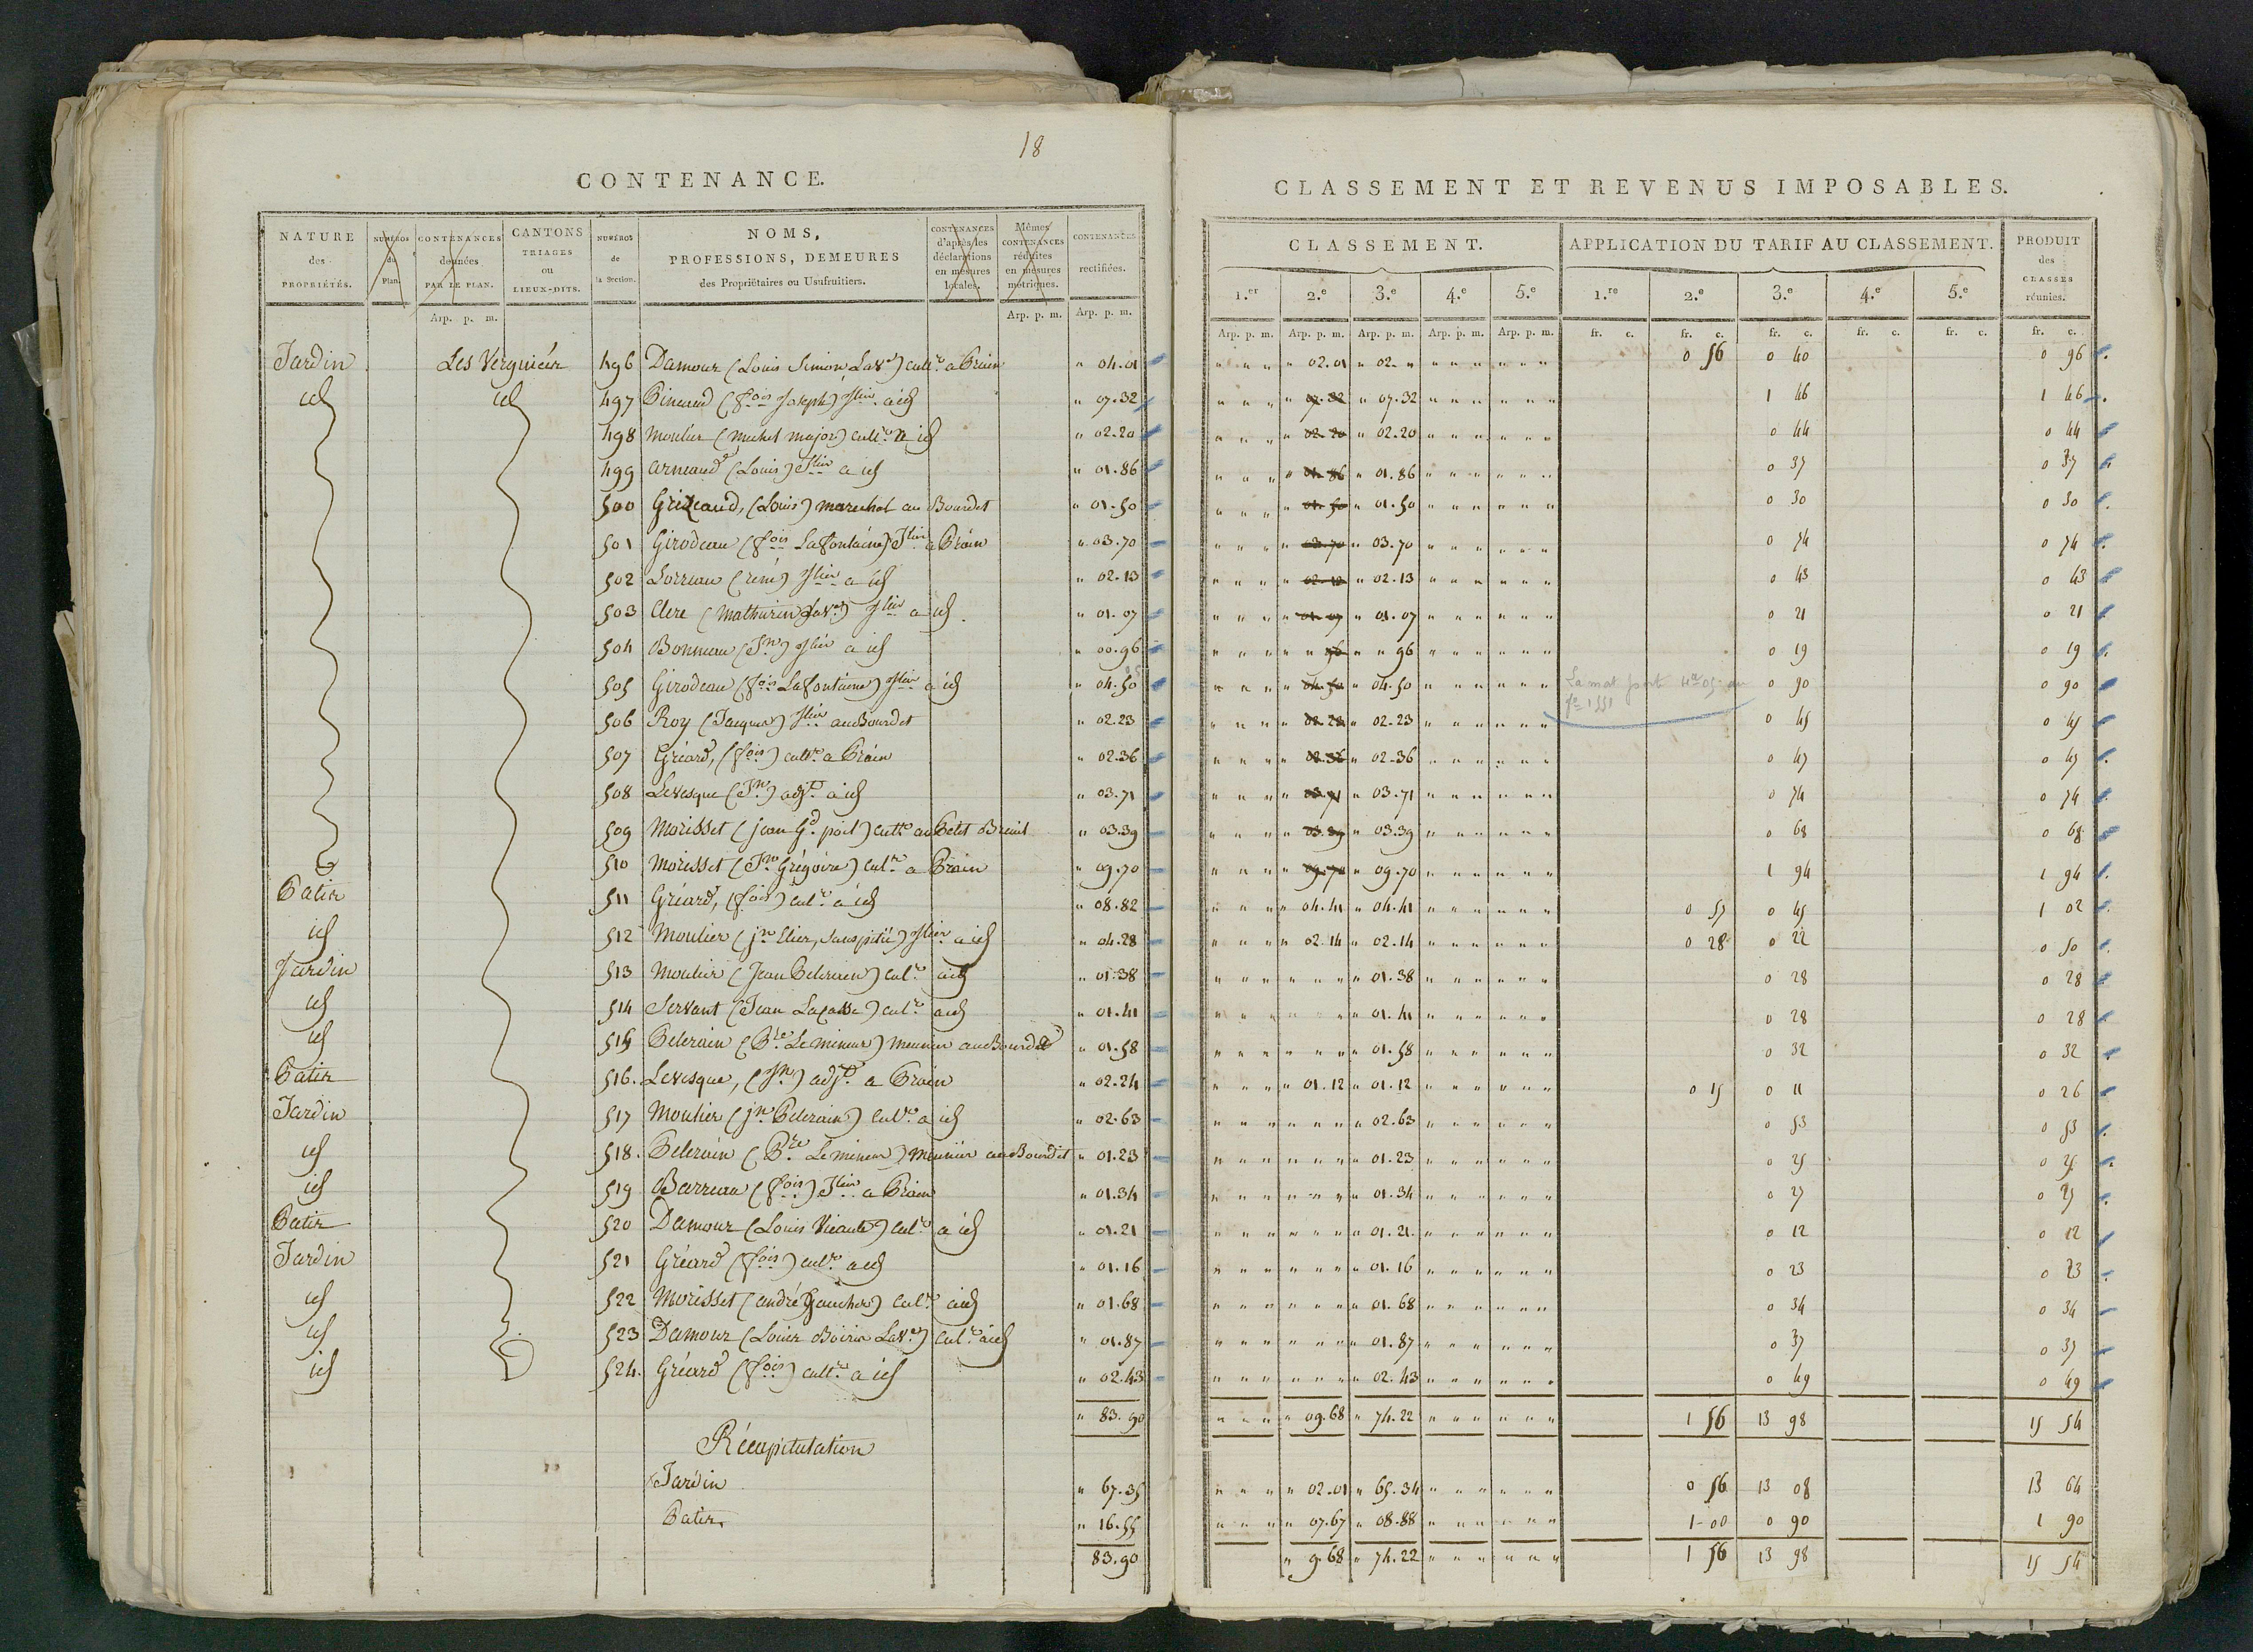 18
CONTENANCE.
NATURE des PROPRIÉTÉS. NUMÉROS du Plan. CONTENANCES données PAR LE PLAN. CANTONS TRIAGES ou LIEUX-DITS. NUMÉROS de la Section. NOMS, PROFESSIONS, DEMEURES des Propriétaires ou Usufruitiers. CONTENANCES d'après les déclarations en mesures locales. Mêmes CONTENANCES réduites en mesures métriques. CONTENANCES rectifiées.
Arp. p. m. Arp. p. m. Arp. p. m.
Jardin Les Vergnieur 496 Damour (Louis Simon Lave) cultr. a " 04.01
id id 497 (fois Joseph) Jlier a id " 07.32
498 Moulier (michel major) cultr. a id " 02.20
499 arneaud (Louis) Jlier a id " 01.86
500 (Louis) marechal au Bourdet " 01.50
501 Girodeau (fois Lafontaine) Jlier a " 03.70
502 Lorriau (rené) Jlier a id " 02.13
503 Clere (Mathurin) Jlier a id " 01.07
504 Bonneau (Jn) Jlier a id " 00.96
505 Girodeau (fois Lafontaine) Jlier a id " 04.50
506 Roy (Jacques) Jlier au Bourdet " 02.23
507 Gréard, (fois) cultr. a " 02.36
508 Levesque (Jn) adjt. a id " 03.71
509 Morisset (jean Gd. poil) cultr. au Petit Breuil " 03.39
510 Morisset (Jn Grégoire) cultr. a " 09.70
Patis 511 Gréard, (fois) cultr. a id " 08.82
id 512 Moulier (jn Elier, Sanspitié) Jlier a id " 04.28
Jardin 513 Moulier (Jean Pelerain) cultr. a id " 01.38
id 514 Servant (Jean) cultr. a id " 01.41
id 515 Pelerain (Bre Le mineur) meunier au Bourdet " 01.58
Patis 516. Levesque, (Jn) adjt. a " 02.24
Jardin 517 Moulier (jn Pelerain) cultr. a id " 02.63
id 518. Pelerain (Bre Le mineur) meunier au Bourdet " 01.23
id 519 Barreau (fois) Jlier a " 01.34
Patis 520 Damour (Louis) cultr. a id " 01.21
Jardin 521 Gréard (fois) cultr. a id " 01.16
id 522 Morisset (andré Gaucher) cultr. a id " 01.68
id 523 Damour (Louis) cultr. a id " 01.87
id 524. Gréard (fois) cultr. a id " 02.43
" 83.90
Récapitulation
Jardin " 67.35
Patis " 16.55
83.90
CLASSEMENT ET REVENUS IMPOSABLES.
CLASSEMENT. APPLICATION DU TARIF AU CLASSEMENT. PRODUIT des CLASSES réunies.
1.er 2.e 3.e 4.e 5.e 1.re 2.e 3.e 4.e 5.e
Arp. p. m. Arp. p. m. Arp. p. m. Arp. p. m. Arp. p. m. fr. c. fr. c. fr. c. fr. c. fr. c. fr. c.
" 02.01 " 02. " 0 56 0 40 0 96
07.32 " 07.32 1 46 1 46
02.20 " 02.20 0 44 0 44
01.86 " 01.86 0 37 0 37
01.50 " 01.50 0 30 0 30
03.70 " 03.70 0 74 0 74
02.13 " 02.13 0 43 0 43
01.07 " 01.07 0 21 0 21
96 " " 96 0 19 0 19
04.50 " 04.50 La mat porte 0 90 0 90
02.23 " 02.23 fo 1551 0 45 0 45
02.36 " 02.36 0 47 0 47
03.71 " 03.71 0 74 0 74
03.39 " 03.39 0 68 0 68
09.70 " 09.70 1 94 1 94
" 04.41 " 04.41 0 57 0 45 1 02
" 02.14 " 02.14 0 28 0 22 0 50
" 01.38 0 28 0 28
" 01.41 0 28 0 28
" 01.58 0 32 0 32
" 01.12 " 01.12 0 15 0 11 0 26
" 02.63 0 53 0 53
" 01.23 0 25 0 25
" 01.34 0 27 0 27
" 01.21 0 12 0 12
" 01.16 0 23 0 23
" 01.68 0 34 0 34
" 01.87 0 37 0 37
" 02.43 0 49 0 49
" 09.68 " 74.22 1 56 13 98 15 54
" 02.01 " 65.34 0 56 13 08 13 64
" 07.67 " 08.88 1-00 0 90 1 90
" 9.68 " 74.22 1 56 13 98 15 54